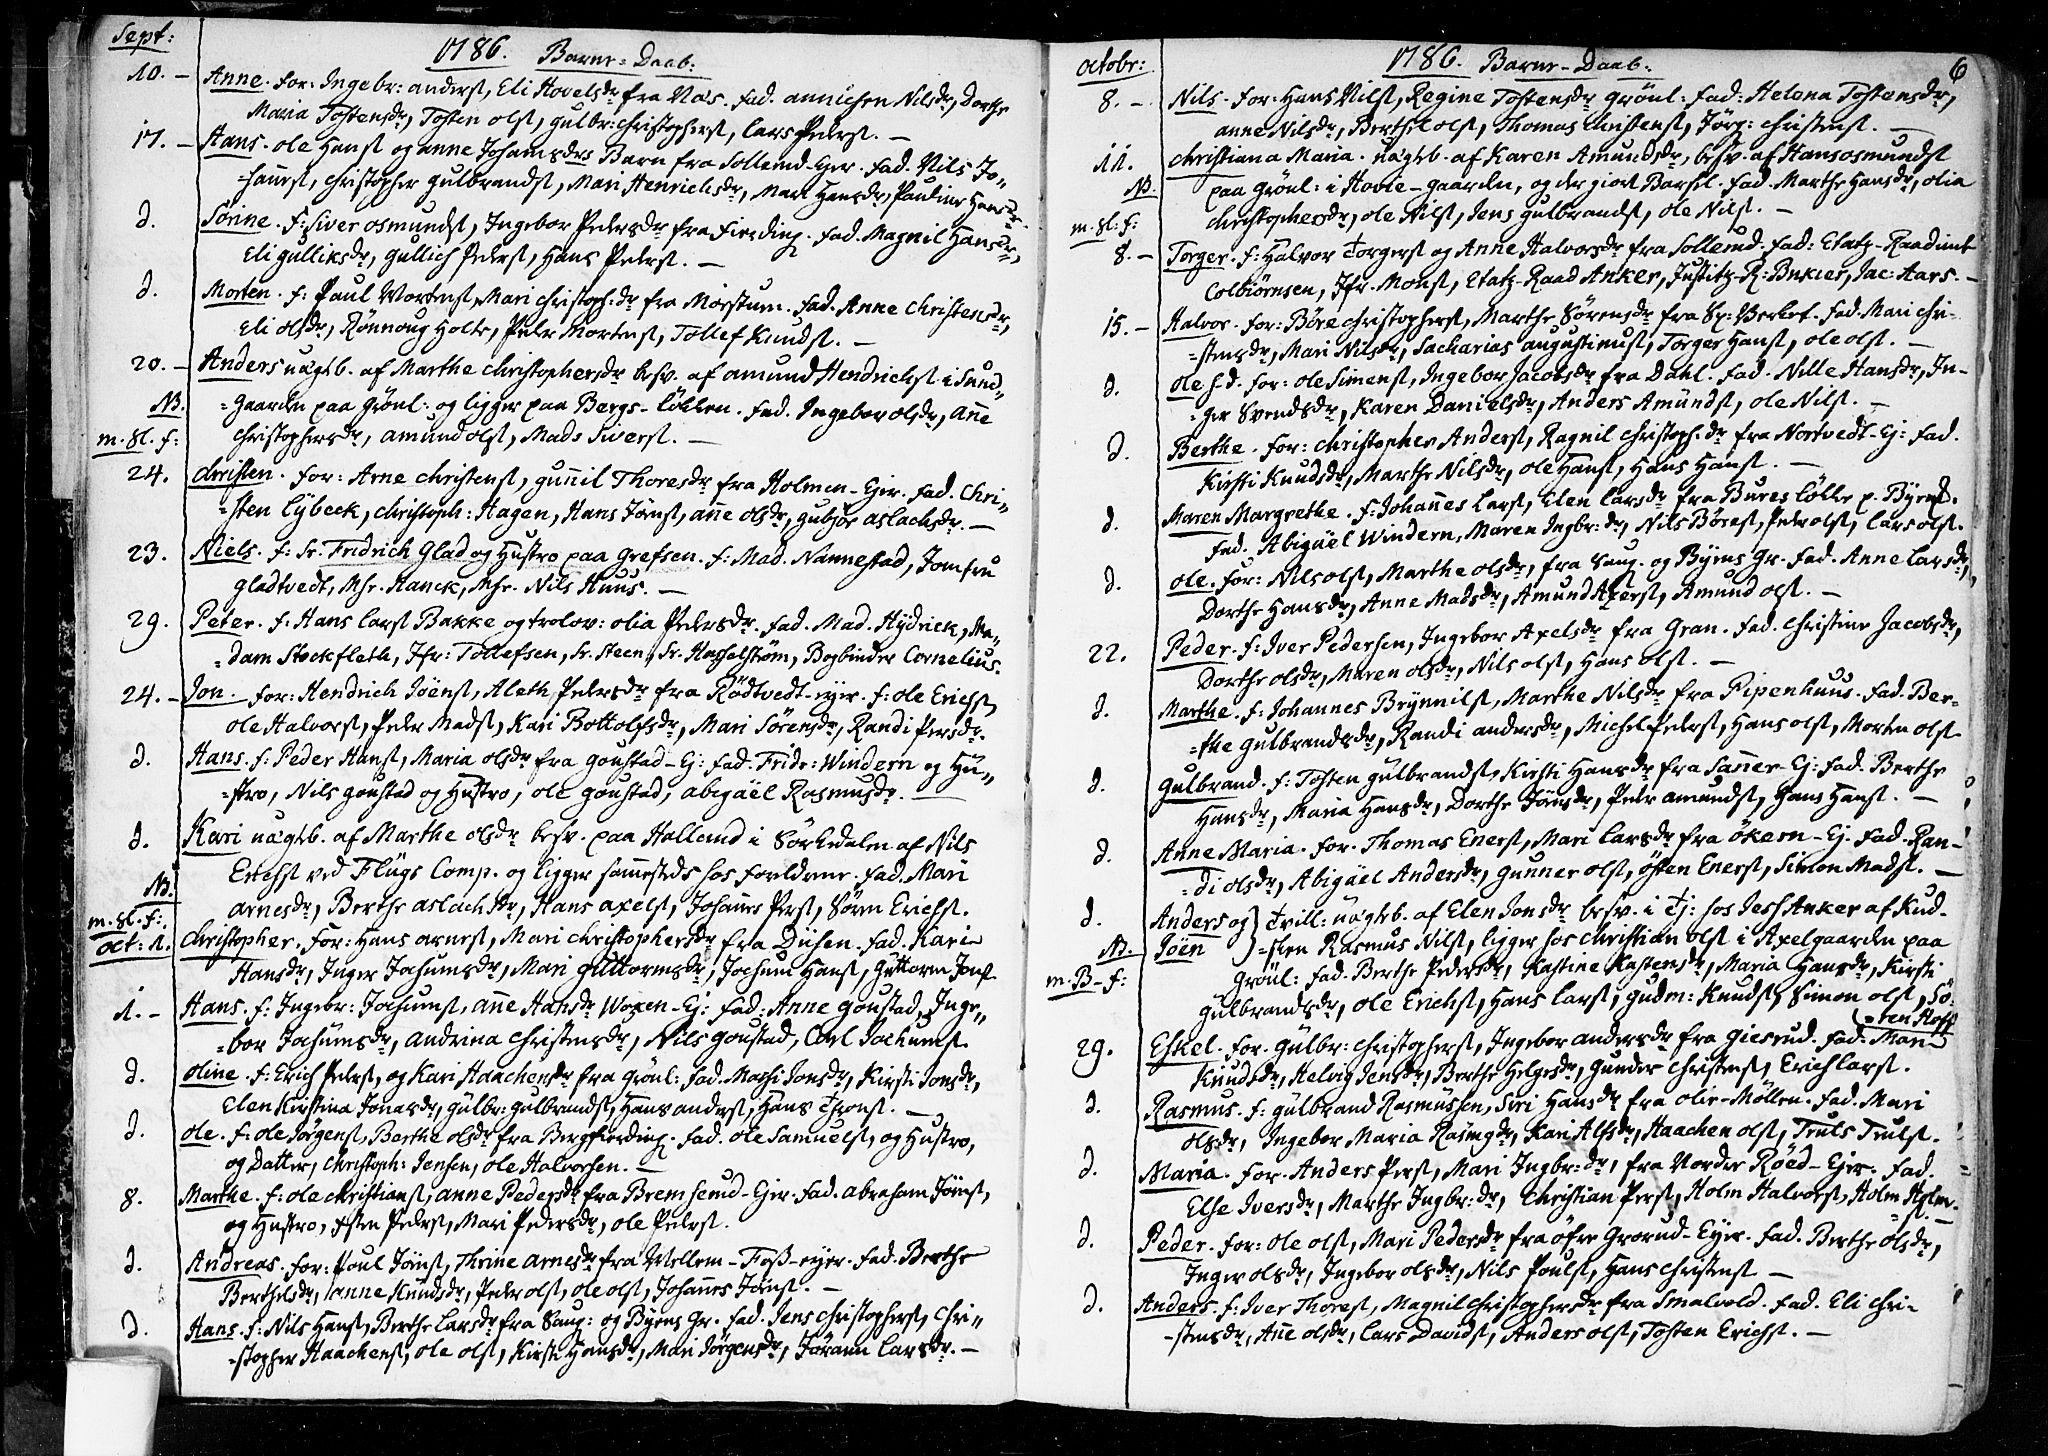 Sept:
1786. Barne=Daab:
10. – Anne. for: Ingebr: anders, Eli Hovelsdr fra Næs. fad. annichen Nilsdr, Dorthe
Maria Tostensdr, Tosten ols, gulbr: christophers, lars Peders. –
17. – Hans. ole Hans og anne Johansdrs Barn fra Sollerud-Ejer. fad. Nils Jo„
=hanes, christopher gulbrands, Mari Henrichsdr, Mari Hansdr, Pauline Hansdr.
d. Sørine. f: Siver osmunds, Ingebor Pedersdr fra Fierding. fad. Magnil Hansdr,
Eli gulliksdr, gullich Peders, Hans Peders. –
d. Morten. f: Paul Mortens, Mari christoph: dr fra Morstuen. fad. Anne Christensdr,
Eli olsdr, Rønnoug Holte, Peder Mortens, Tollef Knuds. –
20. – Anders uægteb. af Marthe christophersdr besv. af amund Hendrichs i Sund„
NB. =gaarden paa Grønl: og ligger paa Bergs-løkken. fad. Ingebor olsdr, Añe
m. Sl. f: christophersdr, amund ols, Mads Sivers. –
24. christen. for: Arne christens, guñil Thoresdr fra Holmen-Ejer. fad. Chri„
=sten Lybeck, christoph: Hagen, Hans Jøns, añe olsdr, gubjør aslachsdr. –
23. Niels. f: Sr. Fridrich Glad og Hustro paa Grefsen. f: Mad. Nannestad, Jomfru
gladtvedt, Mr. Ranck, Mr. Nils Huus. –
29. Peter. f: Hans lars Bakke og trolov: olia Pedersdr. fad. Mad. Hydrick, Ma„
=dam Stockfleth, Jfr: Tollefsen, Sr. Steen, Sr. Hasselstrøm, Bogbinder Cornelius.
24. – Jon. – for: Hendrich Jøens, Aleth Pedersdr fra Rødtvedt-ejer. f: ole Erichs,
ole Halvors, Peder Mads, Kari Bottolfsdr, Mari Sørensdr, Randi Persdr.
d. Hans. f: Peder Hans, Maria olsdr fra goustad-Ej: fad. Fridr: Windern og Hu„
=stro, Nils goustad og Hustro, ole goustad, abigäel Rasmusdr. –
d. Kari uægteb. af Marthe olsdr besv. paa Hallend i Sørkedalen af Nils
Erichs ved Flügs Comp. og ligger samesteds hos foreldrene. fad. Mari
NB. arnesdr, Berthe aslachsdr, Hans axels, Johanes Pers, Søren Erichs.
m. Sl. f:
oct: 1. christopher. for: Hans arnes, Mari christophersdr fra Disen. fad. Kari
Hansdr, Inger Jochumsdr, Mari guttormsdr, Jochum Hans, Guttorm Jons.
1. – Hans. f: Ingebr: Jochums, añe Hansdr Woxen-Ej: fad: Anne goustad, Inge„
=bor Jochumsdr, andrina christensdr, Nils goustad, Carl Jochums.
d. oline. f: Erich Peders, og Kari Haachensdr fra grønl: fad. Massi Jonsdr, Kirsti Jonsdr,
Elen Kirstina Jonasdr, gulbr: gulbrands, Hans anders, Hans Throns. –
d. ole. f: ole Jørgens, Berthe olsdr fra Bergfierding. fad. ole Samuels, og Hustro,
og Datter, christoph: Jensen, ole Halvorsen. –
8. Marthe. f: ole christians, anne Pedersdr fra Bremserud-Ejer. fad. abraham Jøns,
og Hustro, østen Peders, Mari Pedersdr, ole Peders.
d. Andreas. for: Poul Jøns, Thrine arnesdr fra Mellem-Foss-eyer. fad. Berthe
Berthelsdr, anne Knudsdr, Peder ols, ole ols, Johanes Jøns. –
d. Hans. f: Nils Hans, Berthe larsdr fra Saug: og Byens Gr. fad. Jens christophers, Chri„
=stopher Haachens, ole ols, Kirsti Hansdr, Mari Jørgensdr, Jøran larsdr. –
octobr:
1786. Barne-Daab:
6
8. – Nils. for: Hans Nils, Regine Tostensdr grønl: fad: Helena Tostensdr,
anne Nilsdr, Berthel ols, Thomas christens, Jørg: christens. –
11. christiana Maria. uægteb. af Karen Amundsdr, besv. af Hans osmunds
NB. paa grønl: i Hovie-gaarden, og der giort Barsel. fad. Marthe Hansdr, olia
m. Sl: f: christophersdr, ole Nils, Jens gulbrands, ole Nils. –
8. – Torger. f: Halvor Torgers og Anne Halvorsdr fra Sollerud. fad: Etatz-Raadinde
Colbiørnsen, Jfr. Mons, Etatz-Raad Anker, Justitz-R: Ankier, Jac: Aars. –
15. – Halvor. for: Børe christophers, Marthe Sørensdr fra Sp: Verket. fad. Mari chri-
=stensdr, Mari Nilsdr, Sacharias augustinus, Torger Hans, ole ols. –
d. ole S. D. for: ole Simens, Ingebor Jacobsdr fra Dahl. fad. Nille Hansdr, In-
=ger Svendsdr, Karen Danielsdr, Anders Amunds, ole Nils. –
d. Berthe. for: christopher Anders, Ragnil christoph: dr fra Nortvedt-Ej: fad.
Kirsti Knudsdr, Marthe Nilsdr, ole Hans, Hans Hans. –
d. Maren Margrethe. f: Johanes lars, Elen larsdr fra Bures løkke p. Byens.
fad. Abigäel Windern, Maren Ingbr: dr, Nils Børes, Peder ols, lars ols.
d. ole. for: Nils ols, Marthe olsdr, fra Saug. og Byens Gr. fad. Anne larsdr,
Dorthe Hansdr, Anne Madsdr, Amund Axels, Amund ols. –
22. Peder. f: Iver Pedersen, Ingebor Axelsdr fra Gran. fad. christine Jacobsdr,
Dorthe olsdr, Maren olsdr, Nils ols, Hans ols. –
d. Marthe. f: Johannes Brynnils, Marthe Nilsdr fra Pipenhuus. fad. Ber-
=the gulbrandsdr, Randi andersdr, Michel Peders, Hans ols, Morten ols
d. Gulbrand. f: Tosten gulbrands, Kirsti Hansdr fra Sañer-Ej: fad. Berthe
Hansdr, Maria Hansdr, Dorthe Jønsdr, Peder amunds, Hans Hans. –
d. Anne Maria. for. Thomas Eners, Mari larsdr fra Økern-Ej. fad. Ran-
=di olsdr, Abigäel Andersdr, gunner ols, østen Eners, Simon Mads. –
d. Anders og } Tvill: uægteb. af Elen Jonsdr besv. i Tj: hos Jess Anker af Kud-
NB. Joen } =sken Rasmus Nils, ligger hos christian ols i Axelgaarden paa
m-B-f: Grønl: fad. Berthe Pedersdr, Kastine Kastensdr, Maria Hansdr, Kirsti
gulbrandsdr, ole Erichs, Hans lars, gudm: Knuds, Simon ols, Sø-
=ren Hoff
29. Eskel. for. gulbr: christophers, Ingebor andersdr fra giesrud. fad. Mari
Knudsdr, Helvig Jensdr, Berthe Helgesdr, gunder christens, Erich lars.
d. Rasmus. f: gulbrand Rasmussen, Siri Hansdr fra olie-Møllen. fad. Mari
olsdr, Ingebor Maria Rasmusdr, Kari Alfsdr, Haachen ols, Truls Truls.
d. Maria. for. Anders Pers, Mari Ingbr: dr, fra Norder Røed-Ejer. fad.
Else Iversdr, Marthe Ingbr: dr, Christian Pers, Holm Halvors, Holm Holm.
d. Peder. for: ole ols, Mari Pedersdr fra øfre Grorud-Eyer. fad. Berthe olsdr,
Inger olsdr, Ingebor olsdr, Nils Pouls, Hans christens –
d. Anders. f: Iver Thores, Magnil christophersdr fra Smalvold. fad. Eli chri-
=stensdr, Añe olsdr, lars Davids, Anders ols, Tosten Erichs. –